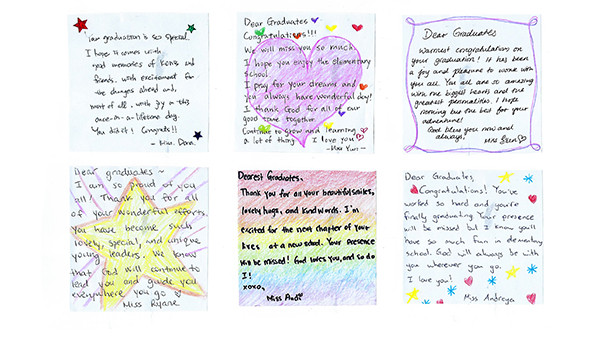 Your graduation is so special.
I hope it comes with
good memories of KONIS and
friends, with excitement for
the changes ahead and,
most of all, with joy in this
once-in-a-lifetime day.
You did it! Congrats!!
- Miss Dana.
Dear Graduates
Congratulations!!!
We will miss you so much.
I hope you enjoy the elementary
School.
I pray for your dreams and
you always have wonderful day!
I thank God for all of our
good time together.
Continue to grow and learning
a lot of thing. I love you
- Miss Yuri -
Dear Graduates
Warmest congratulations on
your graduation! It has been
a joy and pleasure to work with
you all. You all are so amazing
with the biggest hearts and the
greatest personalities. I hope
nothing but the best for your
adventure!
God bless you now and
always.
Miss
Dear graduates ~
I am so proud of you
all. Thank you for all
of your wonderful efforts.
You have become such
lovely, special, and unique
young leaders. We know
that God will continue to
lead you and guide you
everywhere you go
Miss Rynne
Dearest Graduates,
Thank you for all your beautiful smiles,
lovely hugs, and kind words. I'm
excited for the next chapter of your
lives at a new school. Your presence
will be missed! God loves you, and so do
I!
xoxo,
Miss Andi
Dear Graduates,
Congratulations! You've
worked so hard and you're
finally graduating. Your presence
will be missed but I know you'll
have so much fun in elementary
school. God will always be with
you wherever you go.
I love you!
Miss Andreya